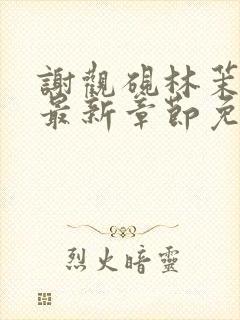 謝觀硯林茱
最新章節免
烈火暗靈